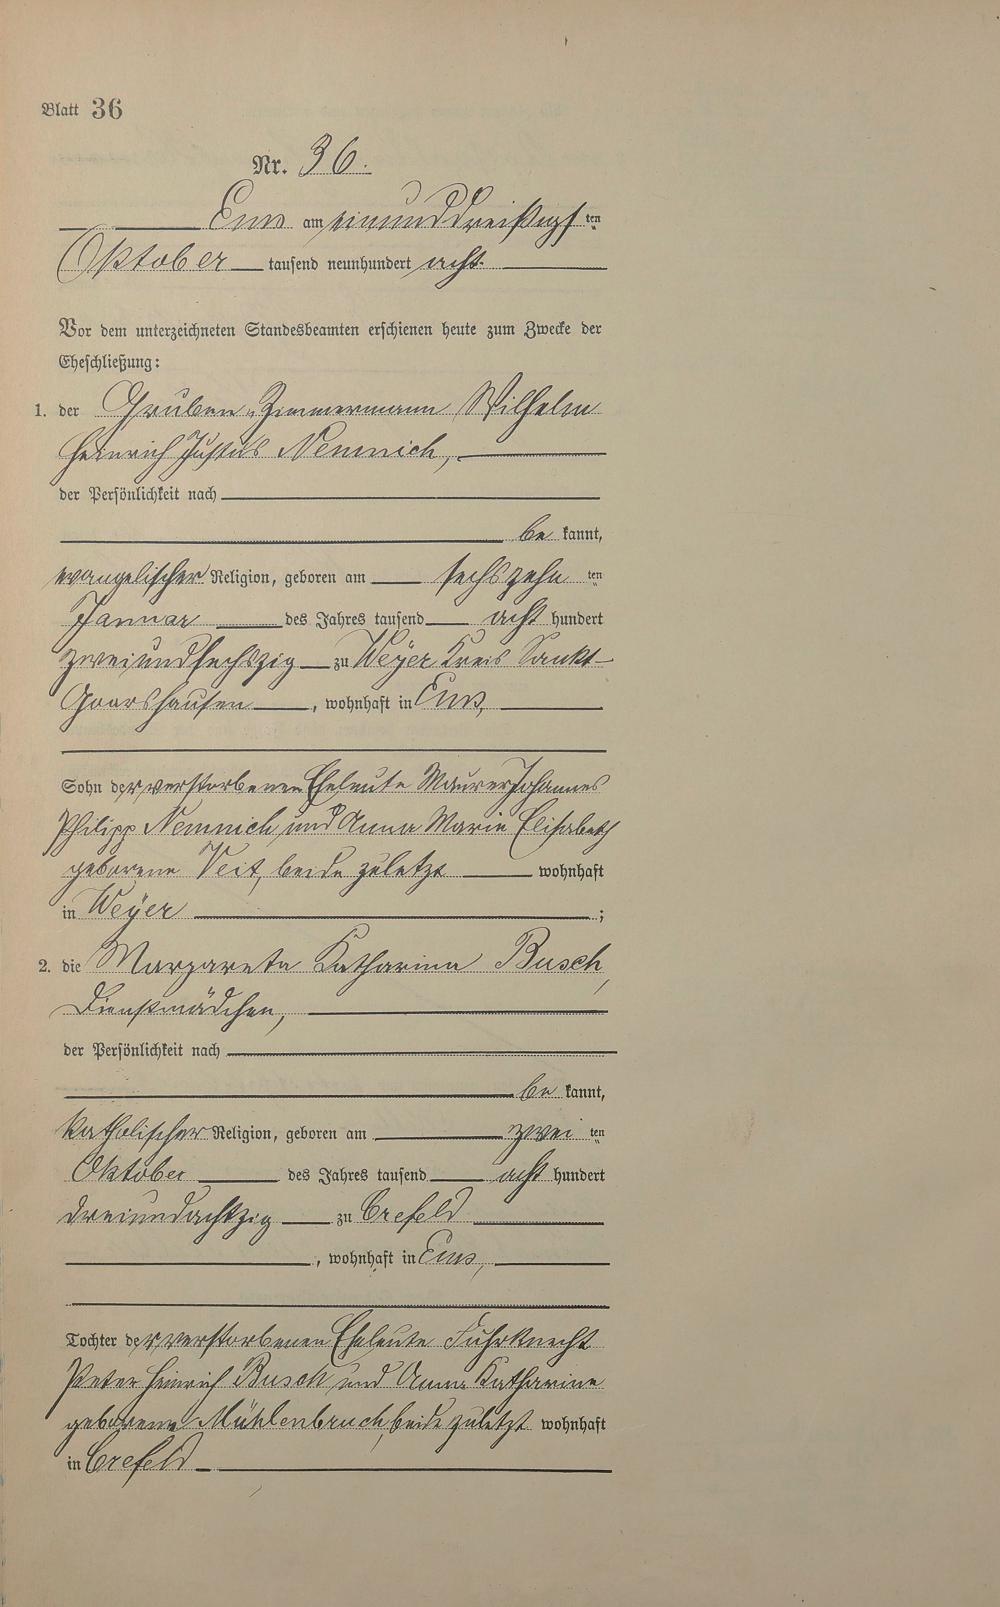 Blatt 36
Nr. 36.
Ems am einunddreißigsten
Oktober tausend neunhundert acht
Vor dem unterzeichneten Standesbeamten erschienen heute zum Zwecke der
Eheschließung:
1. der Gruben-Zimmermann Wilhelm
Heinrich Justus Nemnich,
der Persönlichkeit nach
be kannt,
evangelischer Religion, geboren am sechszehn ten
Januar des Jahres tausend acht hundert
zweiundsechszig zu Weyer Kreis Sankt-
Goarshausen, wohnhaft in Ems,
Sohn der verstorbenen Eheleute Maurer Johannes
Philipp Nemnich und Anna Maria Elisabeth
geborene Veit, beide zuletzt wohnhaft
in Weyer;
2. die Margareta Katharina Busch,
Dienstmädchen,
der Persönlichkeit nach
be kannt,
katholischer Religion, geboren am zwei ten
Oktober des Jahres tausend acht hundert
dreiundachtzig zu Crefeld
, wohnhaft in Ems,
Tochter der verstorbenen Eheleute Fuhrknecht
Peter Heinrich Busch und Anna Katharina
geborene Mühlenbruch, beide zuletzt wohnhaft
in Crefeld